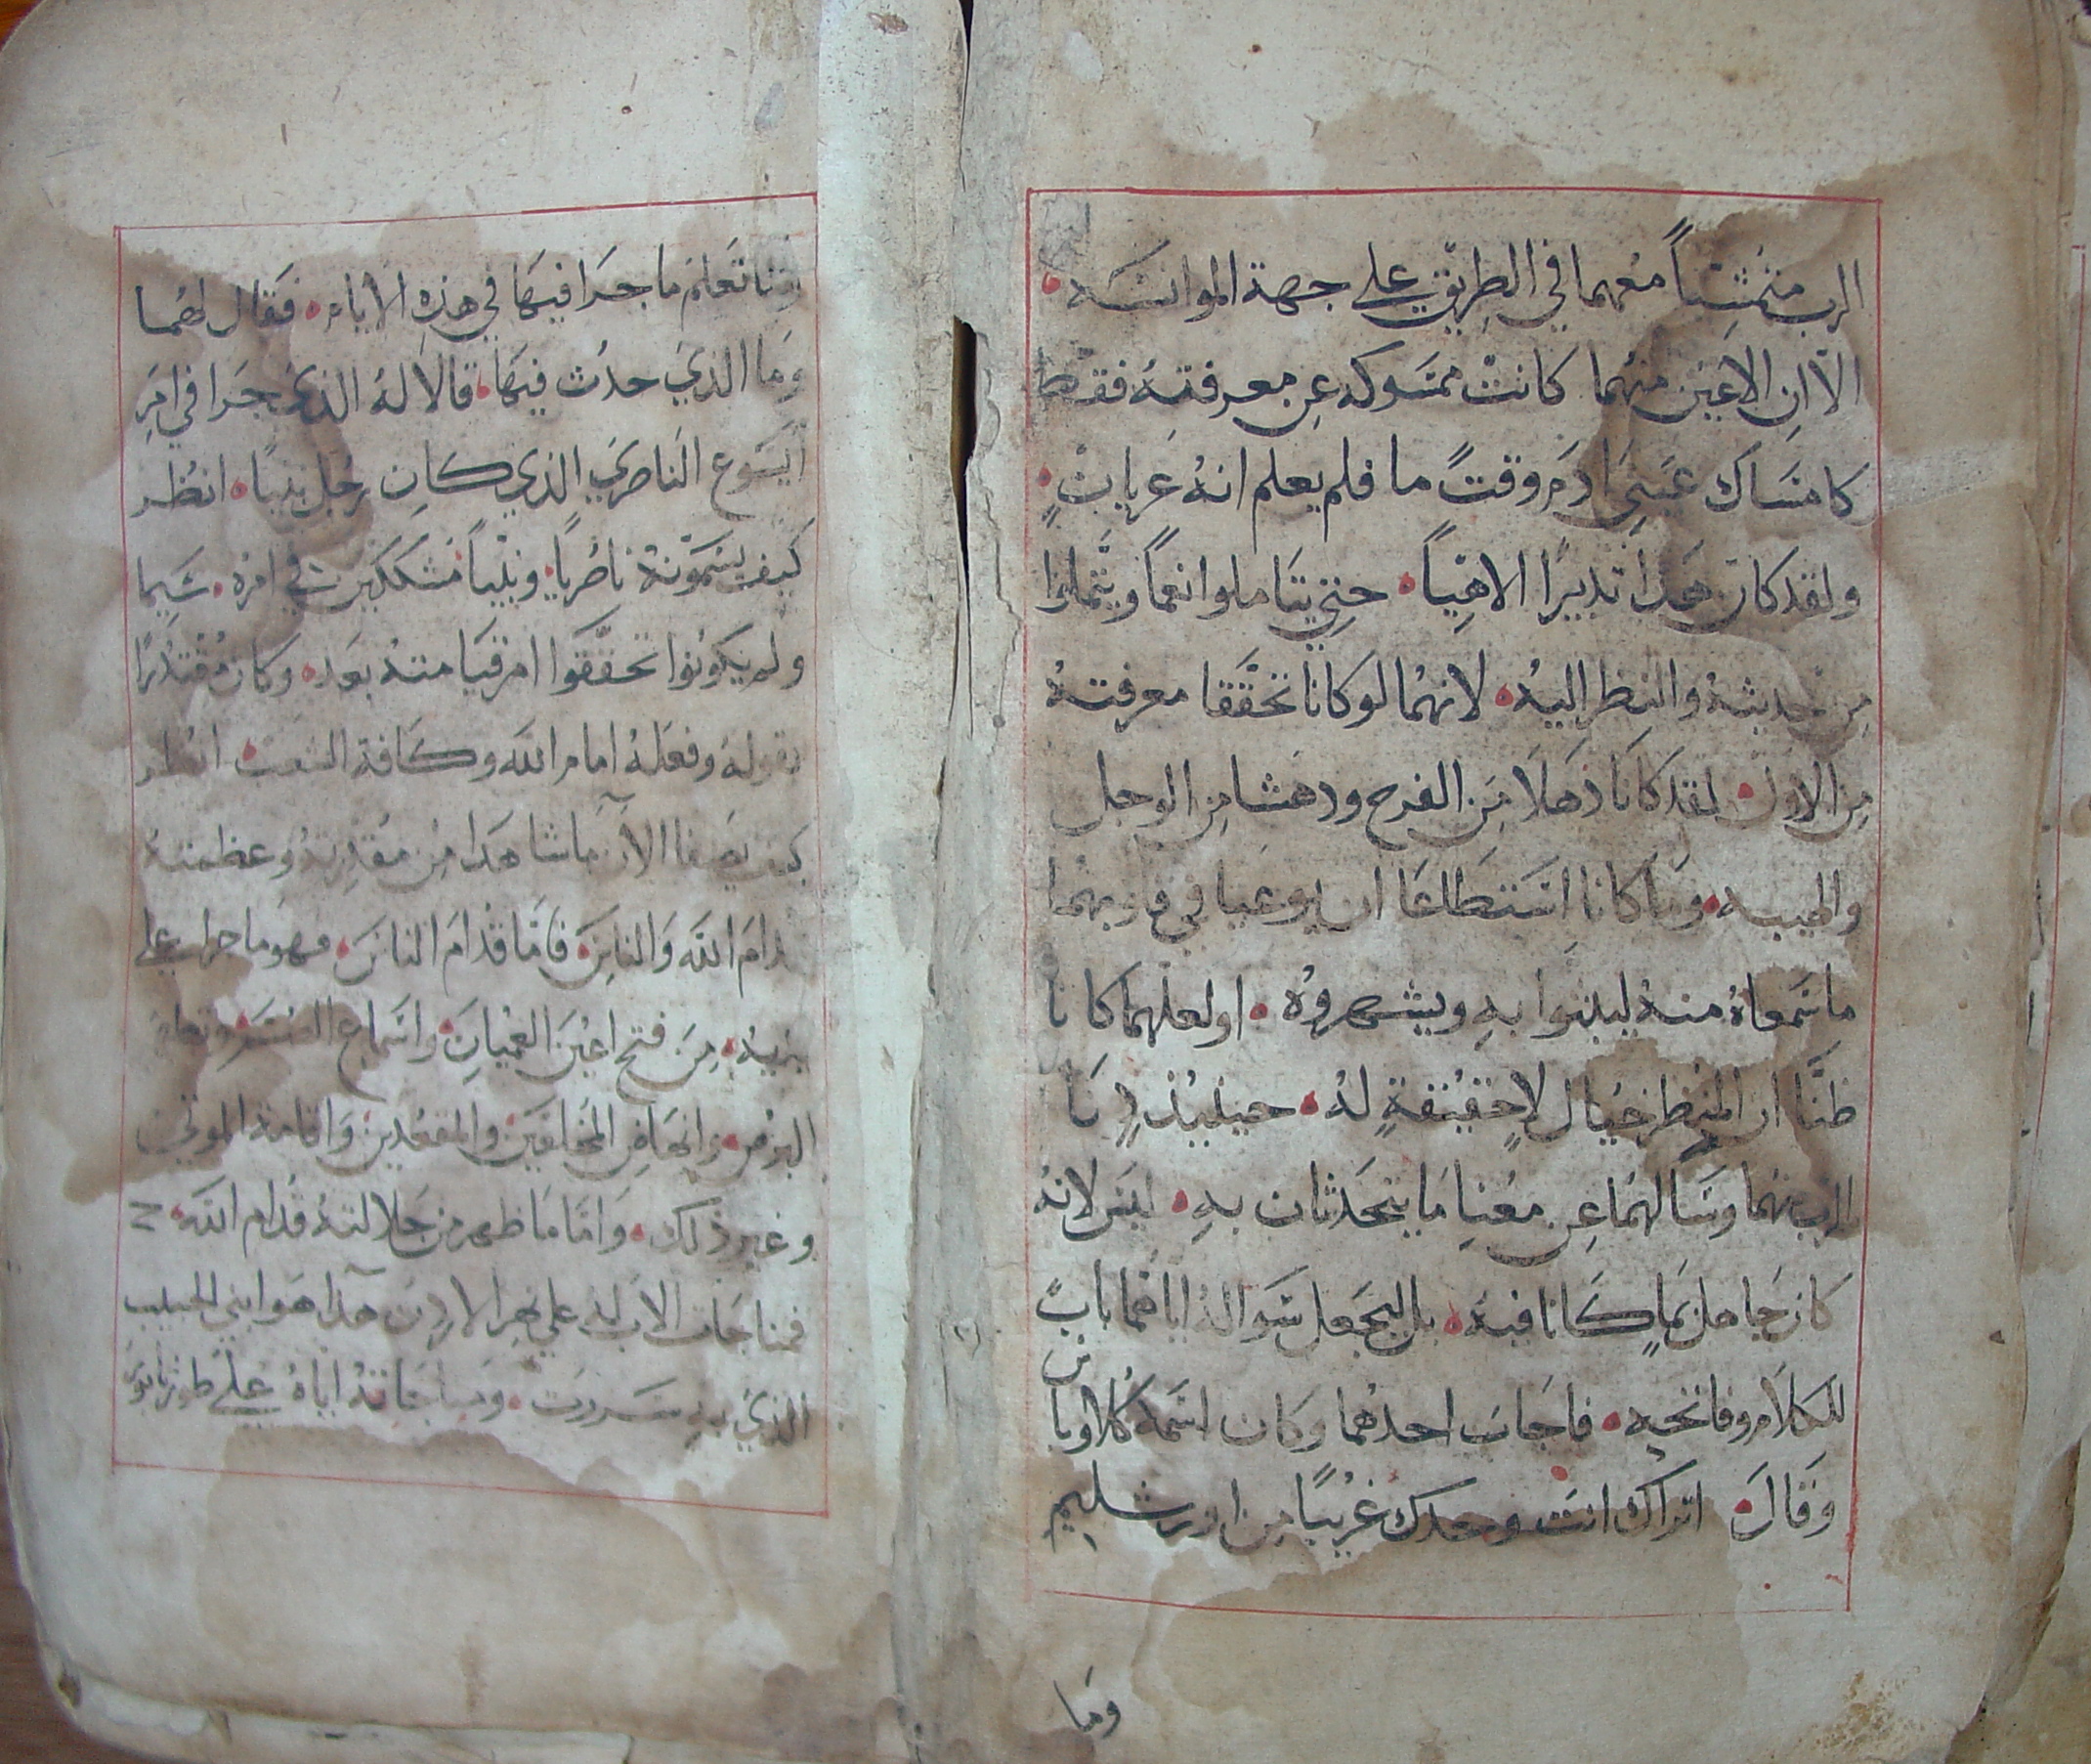 الرب متمشياً معهما في الطريق على جهة الموانسه
الا ان الاعين منهما كانت ممسوكه عن معرفته فقط
كامساك عيني ادم وقتً ما فلم يعلم انه عريان
ولقد كان هدا تدبيرًا الاهياً حتي يتاملوا نعماً ويتملوا
من حديثه والنظر اليه لانهما لو كانا تحققا معرفته
من الاول لقد كانا ذهلا من الفرح ودهشا من الوجل
والهيبه وما كانا استطاعا ان يوعيا في قلوبهما
ما سمعاه منه ليبنوا به ويشهروه او لعلهما كانا
ظنا ان المنظر خيال لا حقيقة له حينيذ دنا
الرب منهما وسالهما عن معنا ما يتحدثان به ليس لانه
كان جاهل بما كانا فيه بل ليجعل سواله اياهما بابً
للكلام وفاتحيه فاجاب احدهما وكان اسمه كلاوبا
س
وقال اتراك انت وحدك غريبًا من اورشليم
وما
وما تعلم ما جرا فيها في هذه الايام فقال لهما
وما الذي حدث فيها قالا له الذي جرا في امر
ايسوع الناصري الذي كان رجل نبيا انظر
كيف يسمونه ناصريا ونبياً مشككين في امره سيما
ولم يكونوا تحققوا امر قيامته بعد وكان مقتدرًا
بقوله وفعله امام الله وكافة الشعب انظر
كيف يصفا الان ما شاهدا من مقدرته وعظمته
قدام الله والناس فاما قدام الناس فهو ما جرا علي
يديه من فتح اعين العميان واسماع الصم
البرص وانهاض المخلعين والمقعدين واقامة الموتي
وغير ذلك واما ما ظهر من جلالته قدام الله
فمناجات الاب له علي نهر الاردن هدا هو ابني الحبيب
الذي به سررت ومناجاته اياه علي طور تابور